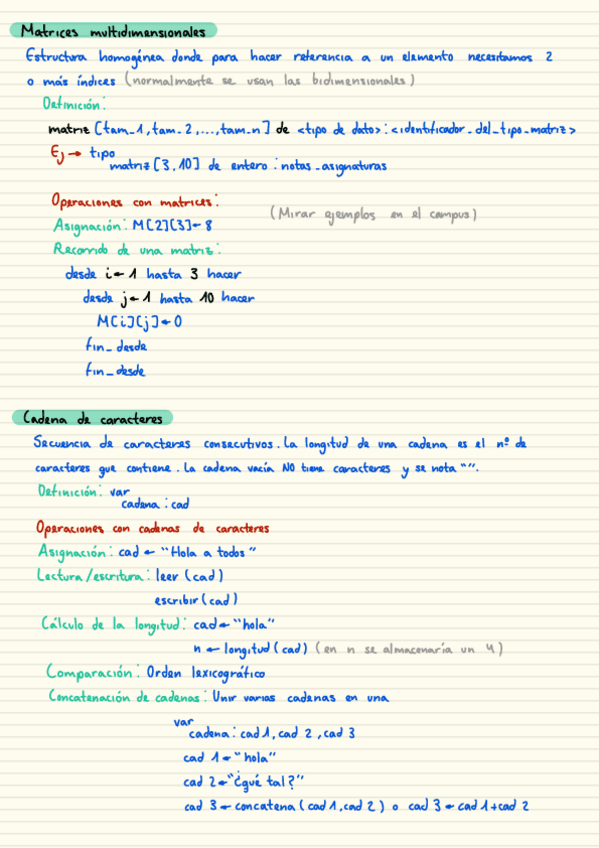 Matrices multidimensionales
Estructura homogénea donde para hacer referencia a un elemento necesitamos 2
o más índices (normalmente se usan las bidimensionales)
Definición:
matriz [tam_1, tam_2, ..., tam_n] de <tipo de dato>: <identificador_del_tipo_matriz>
Ej → tipo
matriz [3,10] de entero : notas_asignaturas
Operaciones con matrices:
(Mirar ejemplos en el campus)
Asignación: M[2][3]←8
Recorrido de una matriz:
desde i←1 hasta 3 hacer
desde j←1 hasta 10 hacer
M[i][j]←0
fin_desde
fin_desde
Cadena de caracteres
Secuencia de caracteres consecutivos. La longitud de una cadena es el nº de
caracteres que contiene. La cadena vacía NO tiene caracteres y se nota "".
Definición: var
cadena : cad
Operaciones con cadenas de caracteres
Asignación: cad ← "Hola a todos"
Lectura/escritura: leer (cad)
escribir (cad)
Cálculo de la longitud: cad←"hola"
n ← longitud (cad) (en n se almacenaría un 4)
Comparación: Orden lexicográfico
Concatenación de cadenas: Unir varias cadenas en una
var
cadena: cad 1, cad 2, cad 3
cad 1←"hola"
cad 2←"¿qué tal?"
cad 3←concatena (cad 1, cad 2) o cad 3←cad 1+cad 2